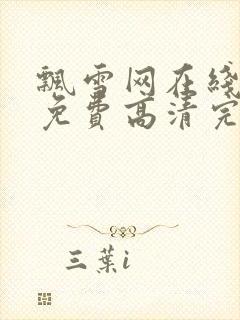 飘雪网在线
免费高清完
三葉i